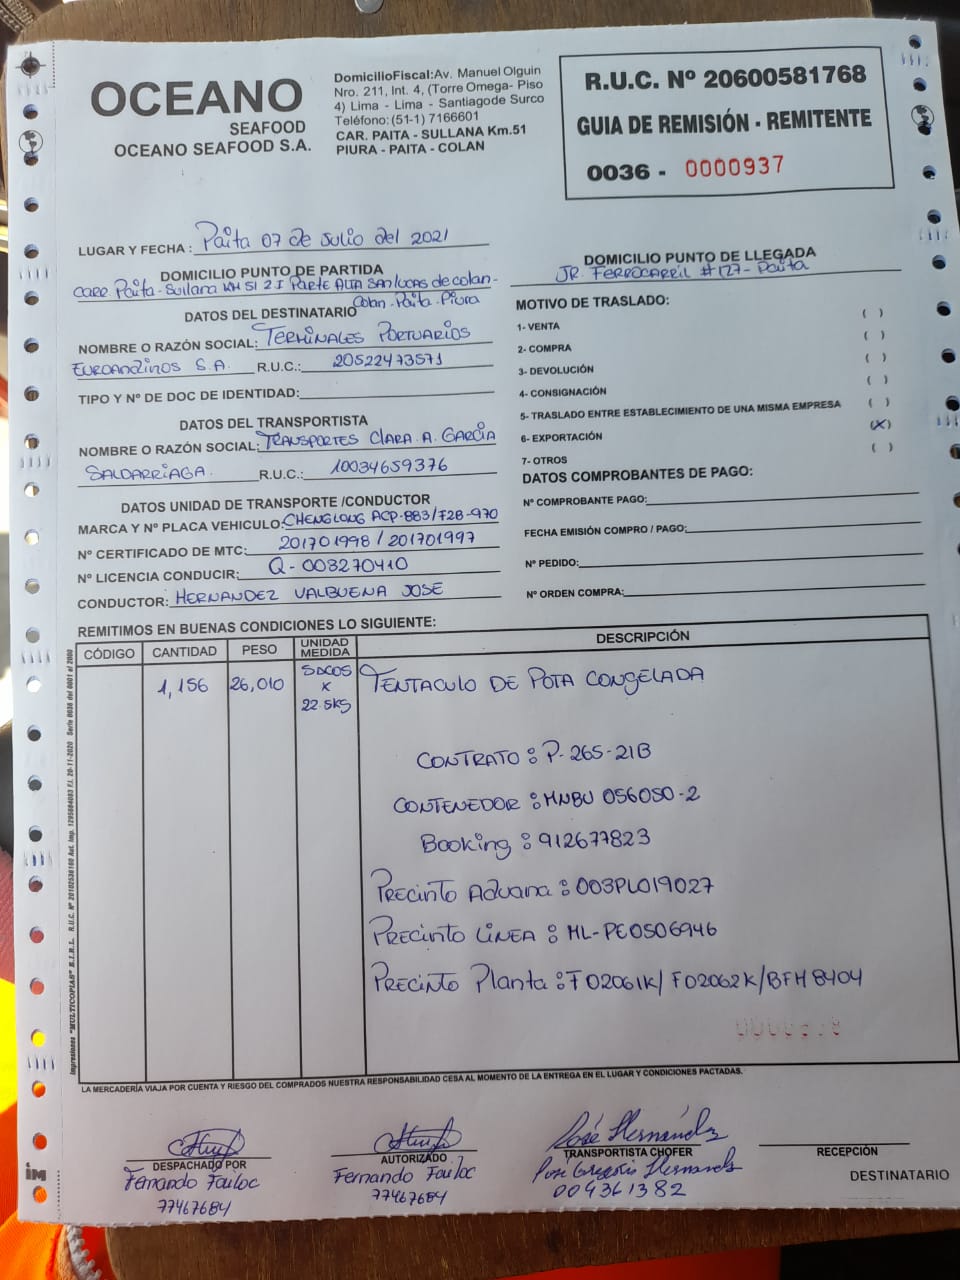 OCEANO
SEAFOOD
OCEANO SEAFOOD S.A.
DomicilioFiscal:Av. Manuel Olguin
Nro. 211, Int. 4, (Torre Omega- Piso
4) Lima - Lima - Santiagode Surco
Teléfono:(51-1) 7166601
CAR. PAITA - SULLANA Km.51
PIURA - PAITA - COLAN
R.U.C. Nº 20600581768
GUIA DE REMISIÓN - REMITENTE
0036 - 0000937
LUGAR Y FECHA : Paita 07 de Julio del 2021
DOMICILIO PUNTO DE PARTIDA
Carr. Paita - Sullana KM 51 Z I Parte Alta San Lucas de Colan-
Colan - Paita - Piura
DATOS DEL DESTINATARIO
NOMBRE O RAZÓN SOCIAL: TERMINALES PORTUARIOS
EUROANDINOS S.A. R.U.C.: 20522473571
TIPO Y Nº DE DOC DE IDENTIDAD:
DATOS DEL TRANSPORTISTA
NOMBRE O RAZÓN SOCIAL: TRANSPORTES CLARA. A. GARCIA
SALDARRIAGA. R.U.C.: 10034659376
DATOS UNIDAD DE TRANSPORTE /CONDUCTOR
MARCA Y Nº PLACA VEHICULO: CHENGLONG ACP-883/F2B-970
Nº CERTIFICADO DE MTC: 201701998 / 201701997
Nº LICENCIA CONDUCIR: Q - 003270410
CONDUCTOR: HERNANDEZ VALBUENA JOSE
DOMICILIO PUNTO DE LLEGADA
JR. FERROCARRIL # 127 - Paita
MOTIVO DE TRASLADO:
1- VENTA ( )
2- COMPRA ( )
3- DEVOLUCIÓN ( )
4- CONSIGNACIÓN ( )
5- TRASLADO ENTRE ESTABLECIMIENTO DE UNA MISMA EMPRESA ( )
6- EXPORTACIÓN (X)
7- OTROS ( )
DATOS COMPROBANTES DE PAGO:
Nº COMPROBANTE PAGO:
FECHA EMISIÓN COMPRO / PAGO:
Nº PEDIDO:
Nº ORDEN COMPRA:
REMITIMOS EN BUENAS CONDICIONES LO SIGUIENTE:
CÓDIGO CANTIDAD PESO UNIDAD MEDIDA DESCRIPCIÓN
1,156 26,010 SACOS x 22.5KS TENTACULO DE POTA CONGELADA
CONTRATO : P-265-21B
CONTENEDOR : MNBU 056050-2
Booking : 912677823
PRECINTO ADUANA : 003PL019027
PRECINTO LINEA : ML-PE0506946
PRECINTO Planta : F02061K/ F02062K/BFM8404
Impresiones "MULTICOPIAS" E.I.R.L. R.U.C. Nº 20102536160 Aut. Imp. 1295884083 F.I. 20-11-2020 Serie 0036 del 0001 al 2000
LA MERCADERÍA VIAJA POR CUENTA Y RIESGO DEL COMPRADOS NUESTRA RESPONSABILIDAD CESA AL MOMENTO DE LA ENTREGA EN EL LUGAR Y CONDICIONES PACTADAS.
DESPACHADO POR
Fernando Fauloc
77467684
AUTORIZADO
Fernando Fauloc
77467684
José Hernández
TRANSPORTISTA CHOFER
José Gregorio Hernandez
004361382
RECEPCIÓN
DESTINATARIO
im